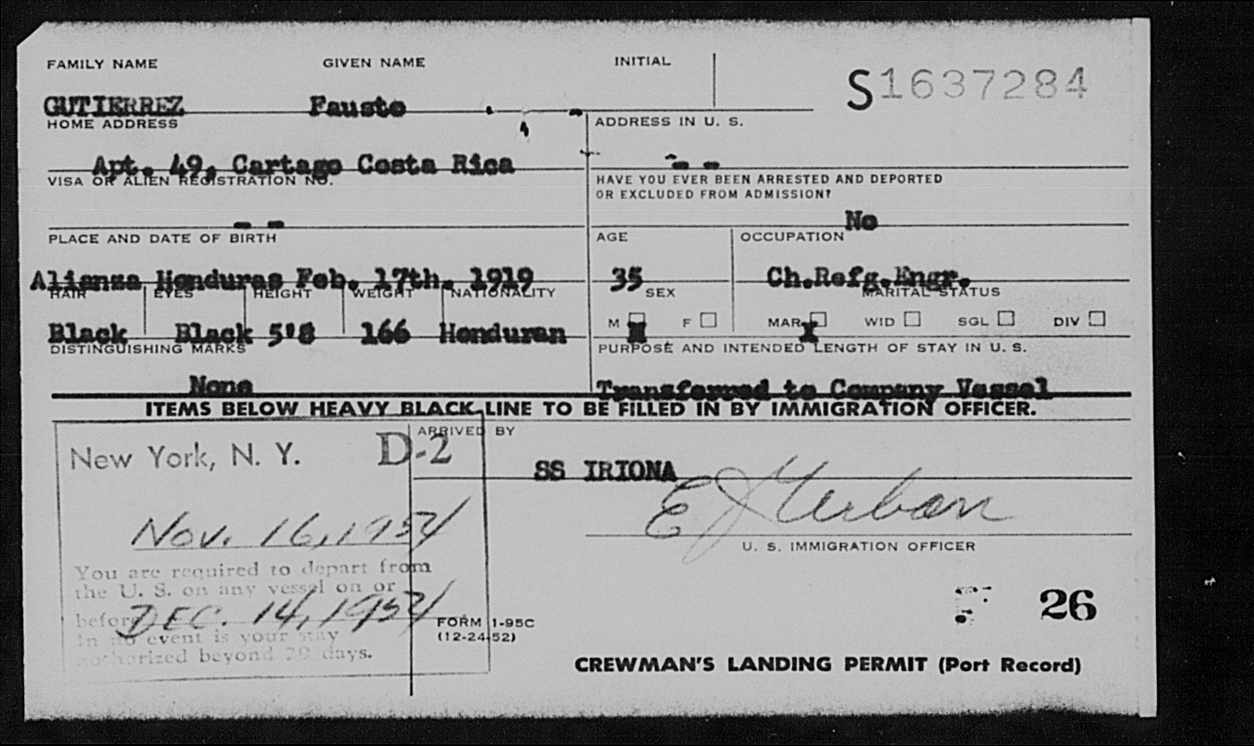 FAMILY NAME GIVEN NAME INITIAL
S1637284
GUTIERREZ Fausto - -
HOME ADDRESS ADDRESS IN U. S.
Apt. 49, Cartago Costa Rica - -
VISA OR ALIEN REGISTRATION NO. HAVE YOU EVER BEEN ARRESTED AND DEPORTED
OR EXCLUDED FROM ADMISSION?
- - No
PLACE AND DATE OF BIRTH AGE OCCUPATION
Alianza Honduras Feb. 17th. 1919 35 Ch.Refg.Engr.
HAIR EYES HEIGHT WEIGHT NATIONALITY SEX MARITAL STATUS
M X F MAR X WID SGL DIV
Black Black 5'8 166 Honduran
DISTINGUISHING MARKS PURPOSE AND INTENDED LENGTH OF STAY IN U. S.
None Transferred to Company Vessel
ITEMS BELOW HEAVY BLACK LINE TO BE FILLED IN BY IMMIGRATION OFFICER.
New York, N. Y. D-2 ARRIVED BY
SS IRIONA
Nov. 16, 1954
U. S. IMMIGRATION OFFICER
You are required to depart from
the U. S. on any vessel on or
before DEC. 14, 1954
In no event is your stay
authorized beyond 29 days.
FORM I-95C
(12-24-52)
26
CREWMAN'S LANDING PERMIT (Port Record)